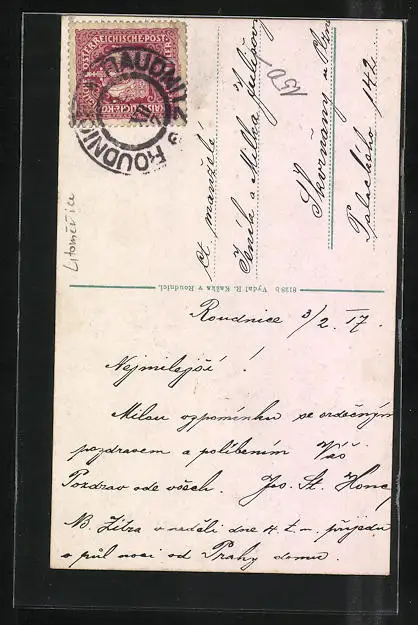 ÖSTERREICHISCHE·POST
RAUDNITZ
ROUDNICE
Litoměřice
150
Ct. manželé
Jeník a Milka
Skvrňany u Plzně
Palackého 142
8128 b Vydal R. Kaška v Roudnici.
Roudnice 3/2. 17.
Nejmilejší !
Milou vzpomínku se srdečným
pozdravem a políbením Váš
Pozdrav ode všech. Jos. St. Honc
NB. Zítra v neděli dne 4. t. m. přijedu
o půl noci od Prahy domu.